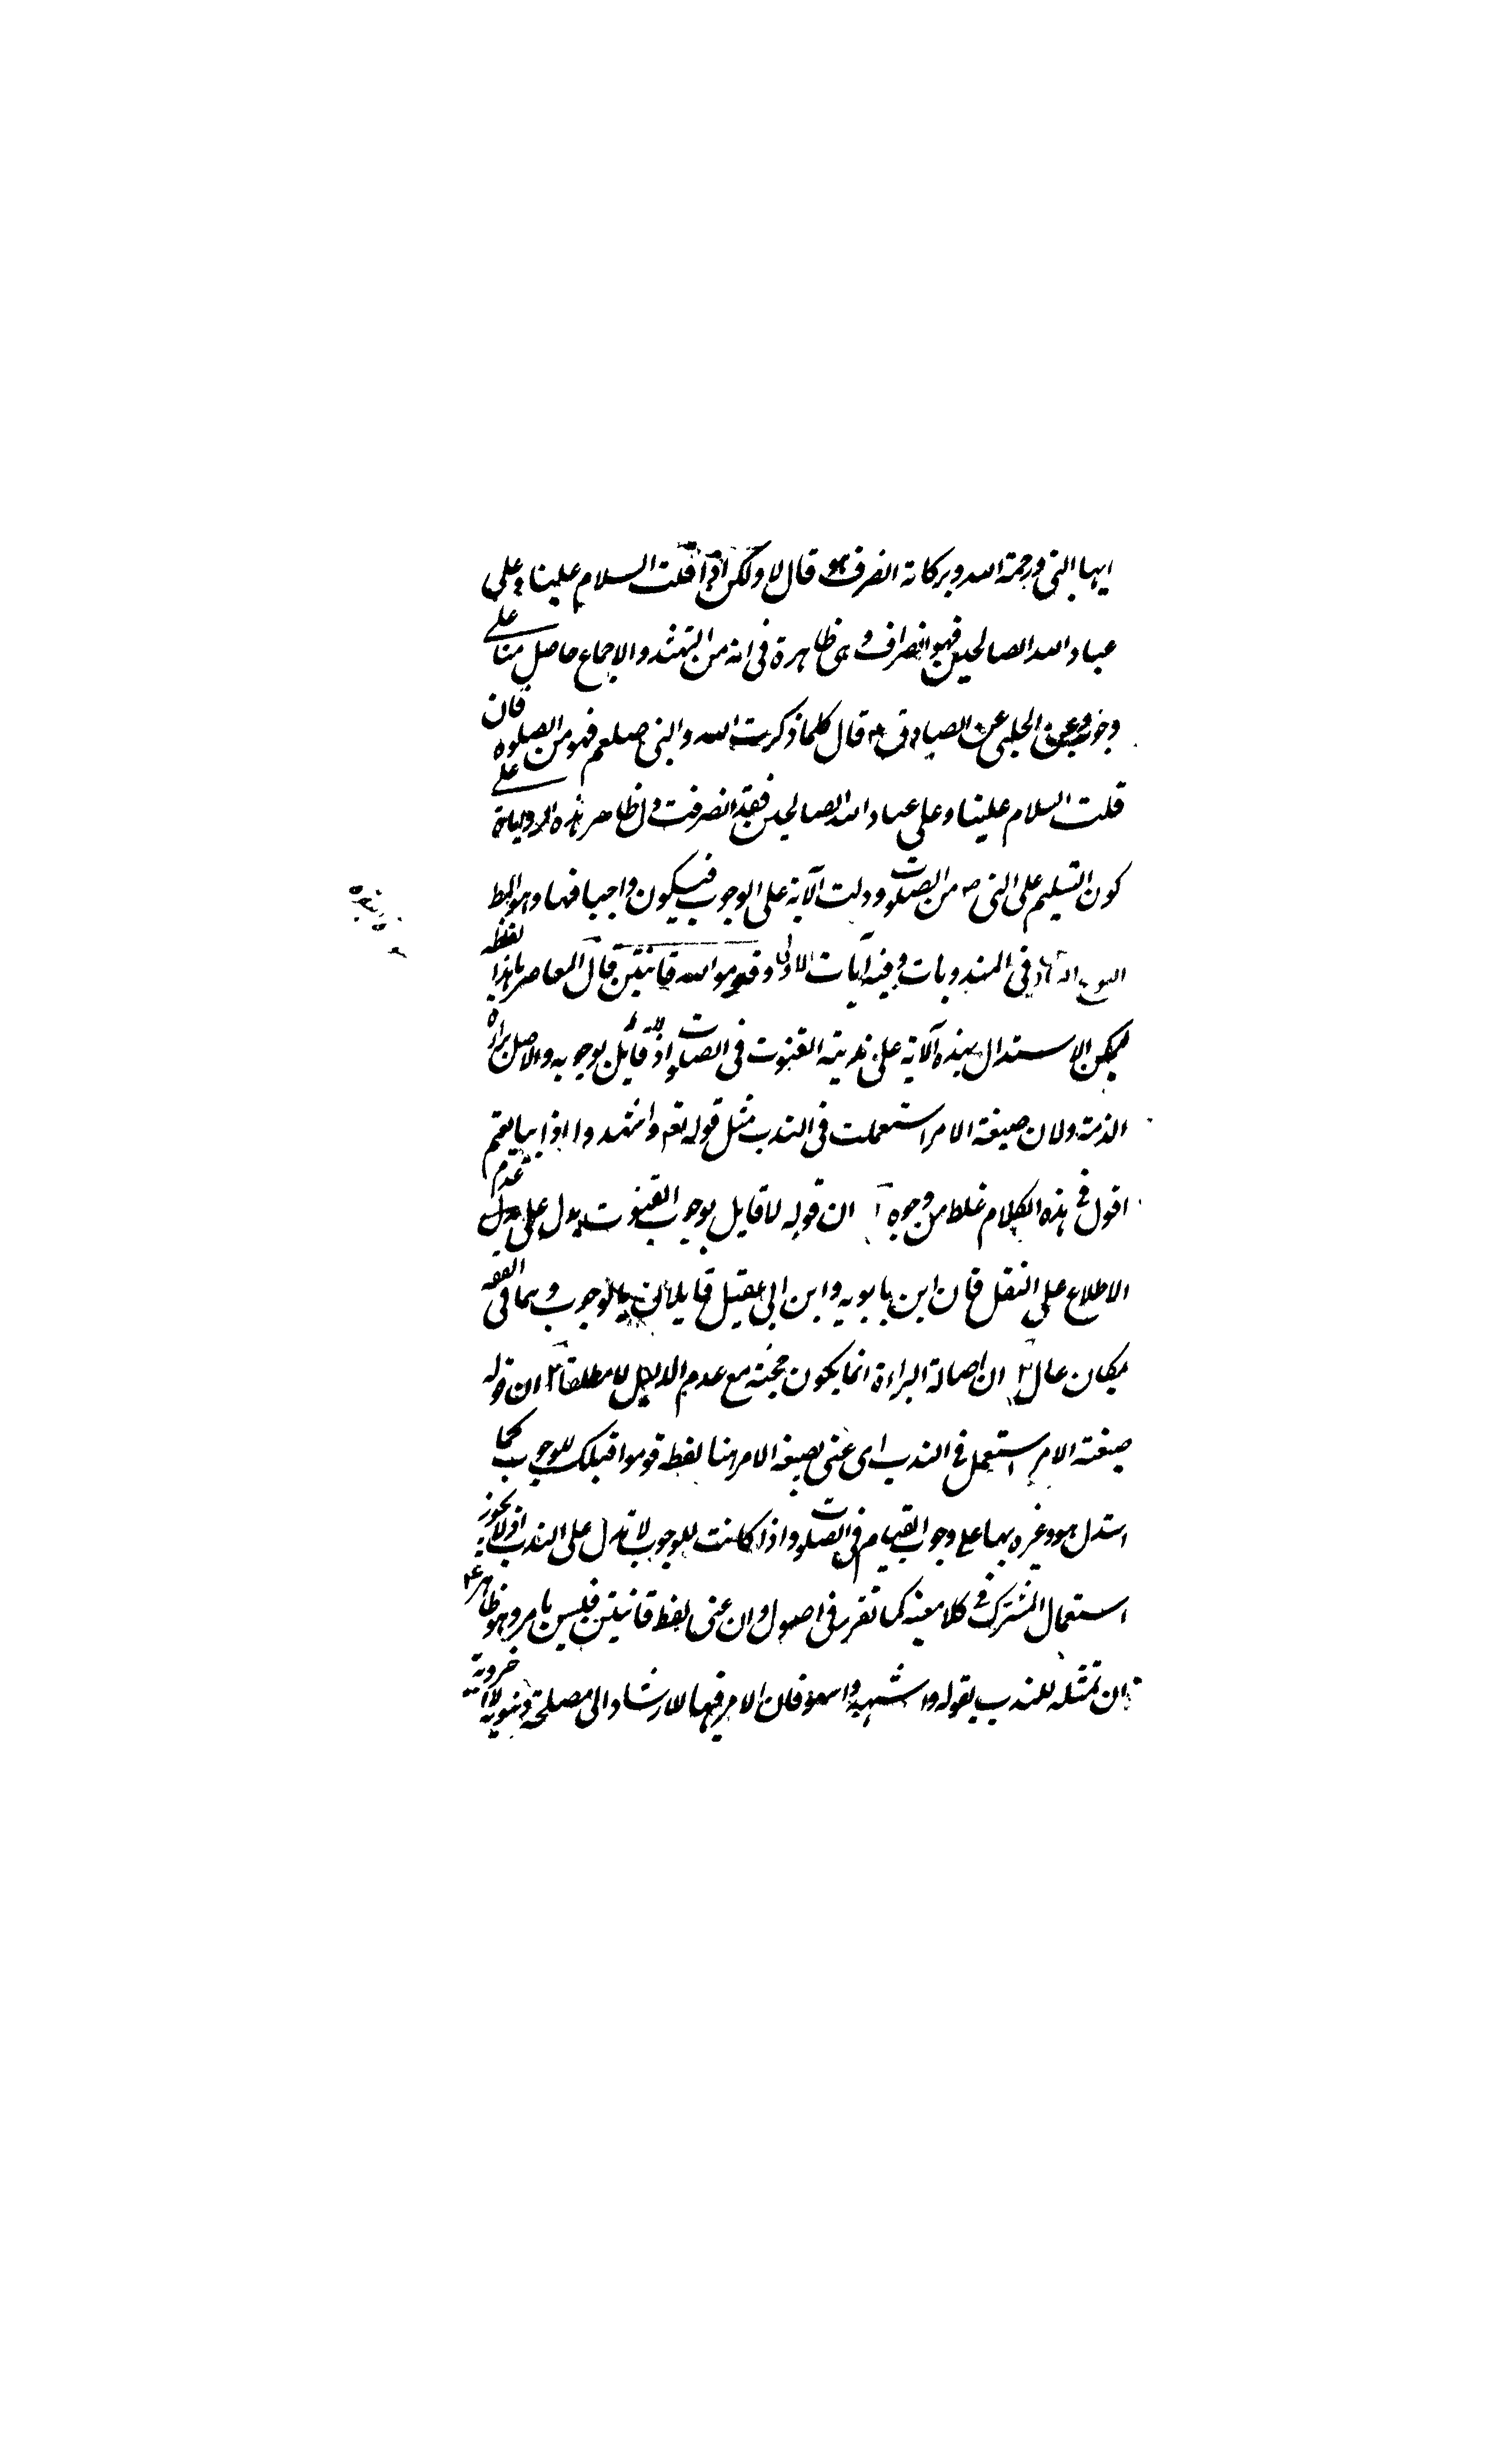 ايها النبى ورحمة الله وبركاته انصراف هو قال لا ولكن اذا قلت السلام علينا وعلى
عباد الله الصالحين فهو انصراف وهى ظاهرة فى انه من التشهد والاجماع حاصل منا على
وجوبه وعن الحلبى عن الصادق ع قال كلما ذكرت الله والنبى صلعم فهو من الصلوة فان
قلت السلام علينا وعلى عباد الله الصالحين فقد انصرفت و ظاهر هذه الرواية على
كون التسليم على النبى ص من الصلوات ودلت الآية على الوجوب فيكون واجبا فيها وهو المط
النوع فى المندوبات وفيه آيات الاولى وقوموا لله قانتين قال المعاصر ما هذا لفظه
يمكن الاستدال بهذه الآية على ندبية القنوت فى الصلوات اذ لا قايل بوجوبه والاصل براءة
الذمة ولان صيغة الامر استعملت فى الندب مثل قوله تعه واشهدوا اذا تبايعتم
اقول فى هذه الكلام غلط من وجوه آ ان قوله لا قايل بوجوب القنوت يدل على عدم
الاطلاع على النقل فان ابن بابويه وابن ابى عقيل قايلان بالوجوب وهما فى الفقه
بمكان عال ٢ ان اصالة البراءة انما يكون حجة مع عدم الدليل لا مطلقا ٣ ان قوله
صيغة الامر استعمل فى الندب اى عنى بصيغة الامر هنا لفظه قوموا فتلك للوجوب كما
استدل هو وغيره بها على وجوب القيام فى الصلوات واذا كانت للوجوب لا تدل على الندب اذ لا يجوز
استعمال المشترك فى كلا معنيه كما تقرر فى اصول وان عنى لفظ قانتين فليس بامر وهو ظاهر ٤
ان تمثله للندب بقوله واشهدوا سهو فان الامر فيها للارشاد الى مصلحة دنيوية لا اخروية